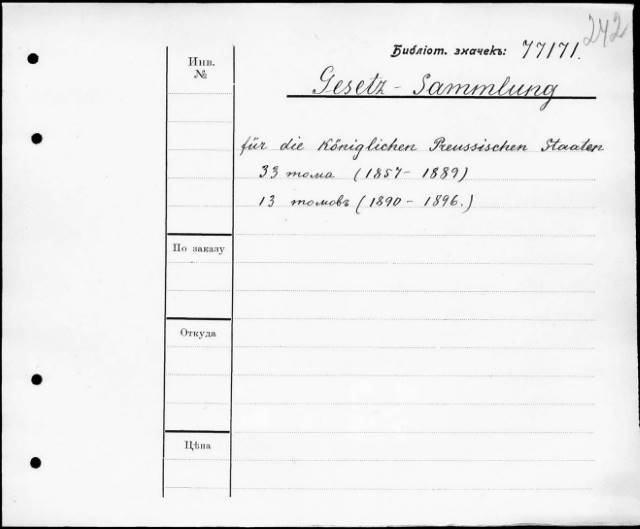 242
Библіот. значекъ: 77171.
Инв.
№
Gesetz - Sammlung
für die Königlichen Preussischen Staaten
33 тома (1857 - 1889)
13 томовъ (1890 - 1896.)
По заказу
Откуда
Цѣна